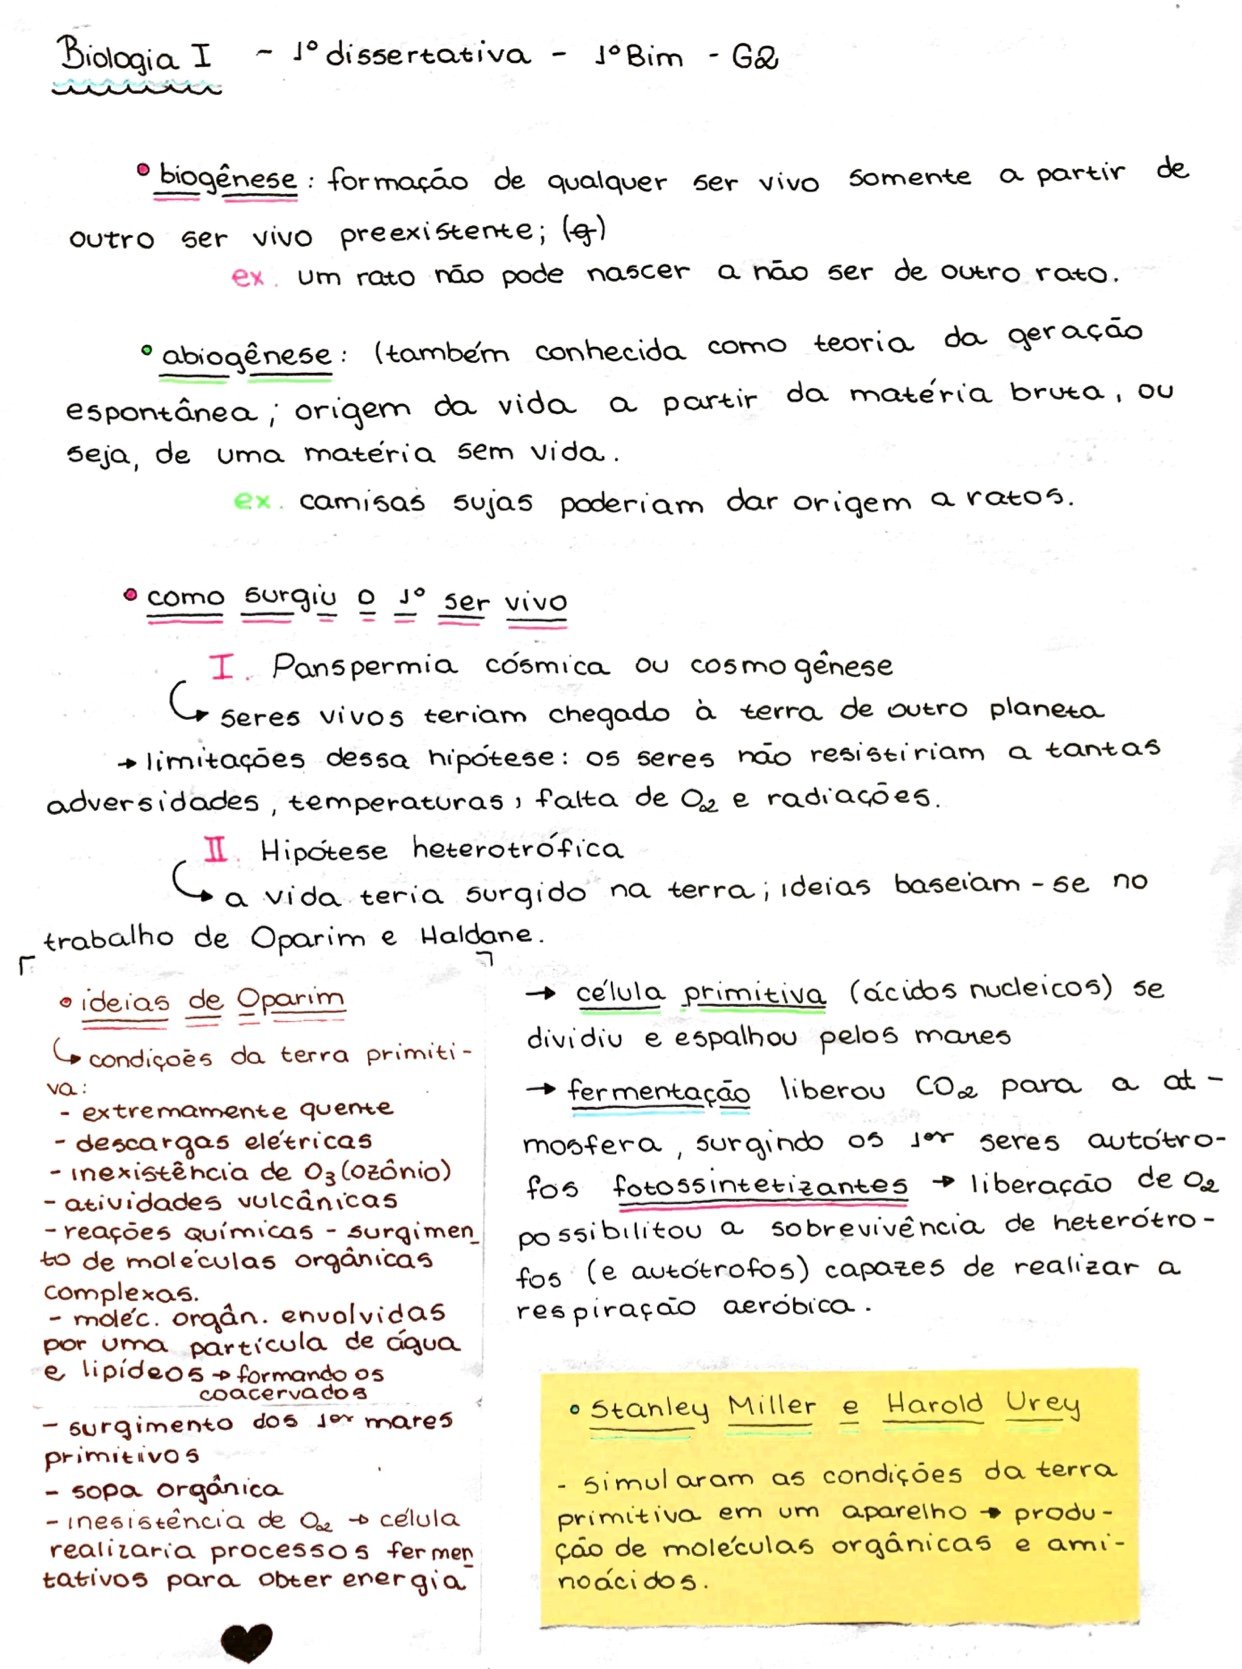 Biologia I - 1º dissertativa - 1º Bim - G2
• biogênese: formação de qualquer ser vivo somente a partir de
outro ser vivo preexistente; (g)
ex. um rato não pode nascer a não ser de outro rato.
• abiogênese: (também conhecida como teoria da geração
espontânea; origem da vida a partir da matéria bruta, ou
seja, de uma matéria sem vida.
ex. camisas sujas poderiam dar origem a ratos.
• como surgiu o 1º ser vivo
I. Panspermia cósmica ou cosmogênese
↳ seres vivos teriam chegado à terra de outro planeta
→ limitações dessa hipótese: os seres não resistiriam a tantas
adversidades, temperaturas, falta de O2 e radiações.
II. Hipótese heterotrófica
↳ a vida teria surgido na terra; ideias baseiam-se no
trabalho de Oparim e Haldane.
• ideias de Oparim
↳ condições da terra primiti-
va:
- extremamente quente
- descargas elétricas
- inexistência de O3 (ozônio)
- atividades vulcânicas
- reações químicas - surgimen_
to de moléculas orgânicas
complexas.
- moléc. orgân. envolvidas
por uma partícula de água
e lipídeos → formando os
coacervados
- surgimento dos 1ºs mares
primitivos
- sopa orgânica
- inesistência de O2 → célula
realizaria processos fermen
tativos para obter energia
→ célula primitiva (ácidos nucleicos) se
dividiu e espalhou pelos mares
→ fermentação liberou CO2 para a at-
mosfera, surgindo os 1ºs seres autótro-
fos fotossintetizantes → liberação de O2
possibilitou a sobrevivência de heterótro-
fos (e autótrofos) capazes de realizar a
respiração aeróbica.
• Stanley Miller e Harold Urey
- simularam as condições da terra
primitiva em um aparelho → produ-
ção de moléculas orgânicas e ami-
noácidos.